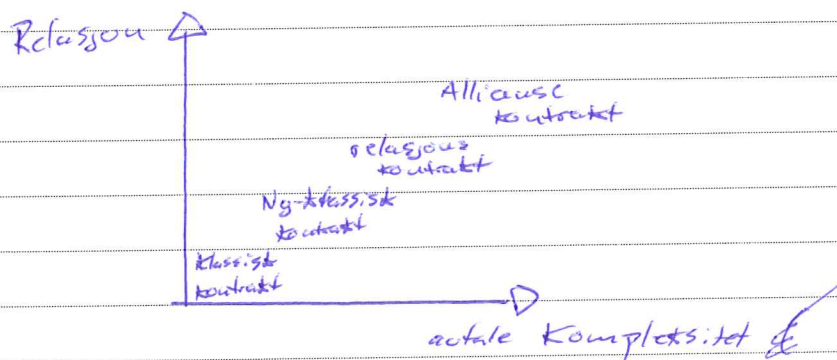 Relasjon
Allianse
kontrakt
relasjons
kontrakt
Ny-klassisk
kontrakt
klassisk
kontrakt
avtale Kompleksitet